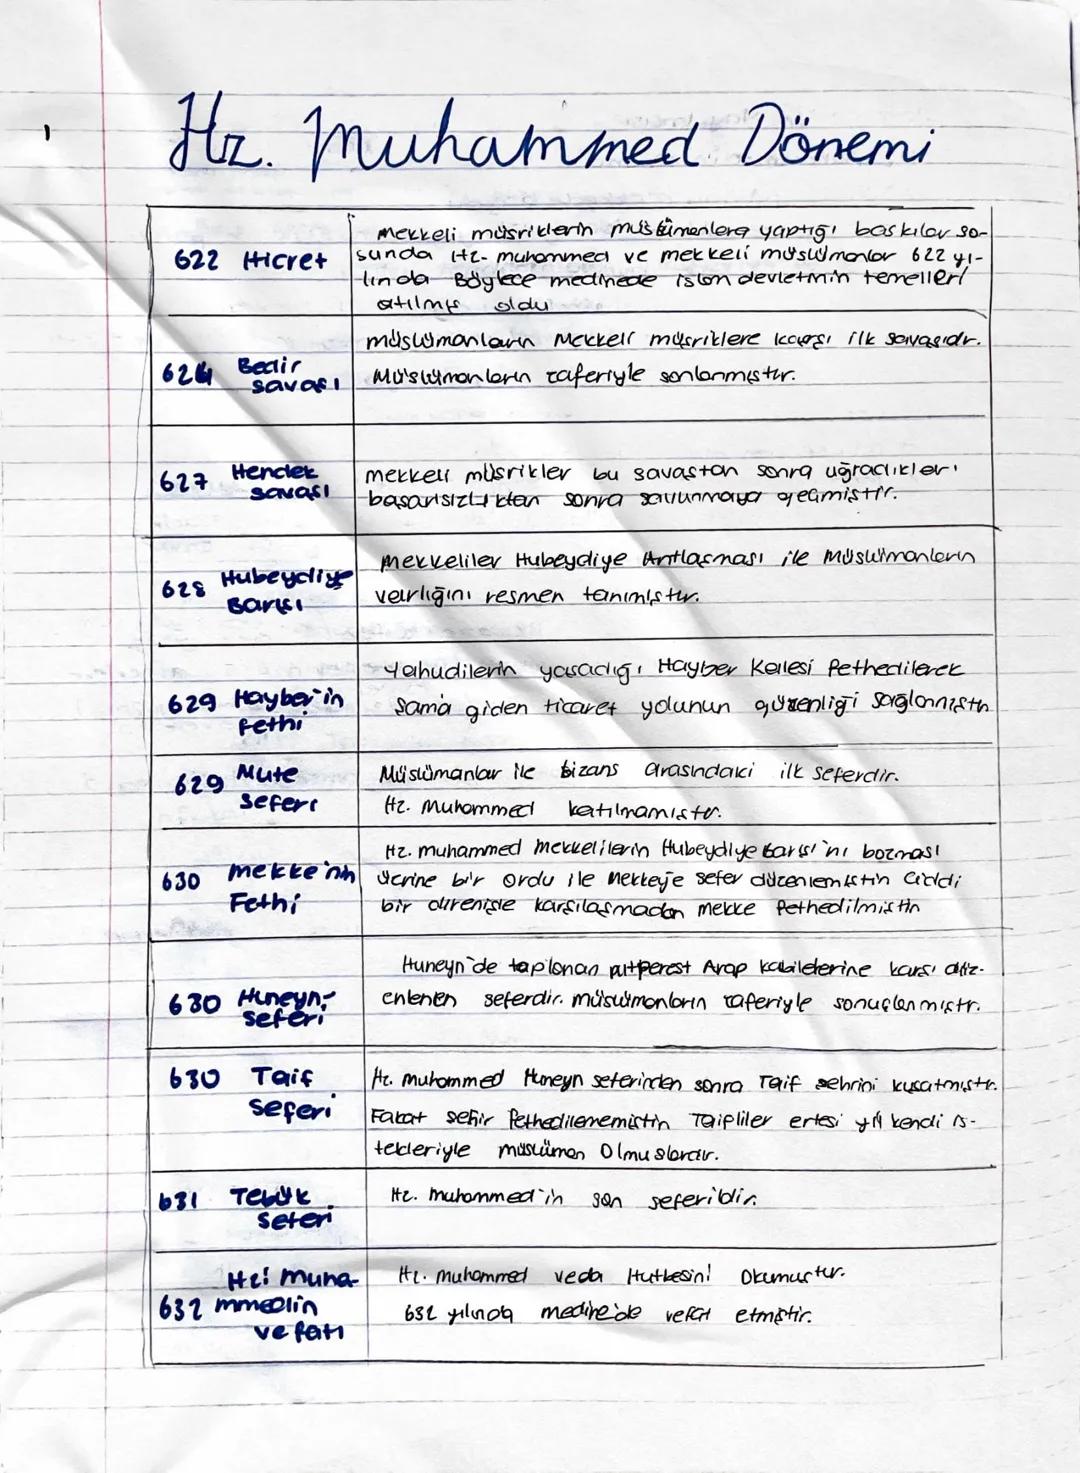 Hz. Muhammed Dönemi
622 Hicret
Mekkeli müsriklerin müslümanlera yaptığı baskılar so-
sunda Hz. muhammed ve mekkeli müslümanlar 622 yı-
lında Böylece medinede islam devletinin temelleri
atılmış oldu
624 Bedir
savaşı
müslümanların Mekkeli müşriklere karşı ilk savaşıdır.
Müslümanların zaferiyle sonlanmıştır.
627 Hendek
savaşı
mekkeli müsrikler bu savaştan sonra uğradıkları
başarısızlıktan sonra savunmaya geçmiştir.
628 Hubeydiye
Barışı
Mekkeliler Hubeydiye Antlaşması ile Müslümanların
varlığını resmen tanımıştır.
629 Hayber'in
fethi
Yahudilerin yaşadığı Hayber Kalesi fethedilerek
Sama giden ticaret yolunun güvenliği sağlanmıştır
629 Mute
seferi
Müslümanlar ile bizans arasındaki ilk seferdir.
Hz. Muhammed katılmamıştır.
630 mekke'nin
Fethi
Hz. muhammed Mekkelilerin Hubeydiye Barışı'nı bozması
üzerine bir ordu ile Mekkeye sefer düzenlemiştir. Ciddi
bir direnişle karşılaşmadan mekke fethedilmiştir
630 Huneyn
seferi
Huneyn'de toplanan putperest Arap kabilelerine karşı düz-
enlenen seferdir. müslümanların zaferiyle sonuçlanmıştır.
630 Taif
seferi
Hz. muhammed Huneyn seferinden sonra Taif şehrini kuşatmıştır.
Fakat şehir fethedilememiştir. Taifliler ertesi yıl kendi is-
tekleriyle müslüman Olmuşlardır.
631 Tebük
seferi
Hz. Muhammed'in son seferidir.
Hz. muha-
632 mmedin
vefatı
Hz. Muhammed veda Hutbesini Okumuştur.
632 yılında medine'de vefat etmiştir.